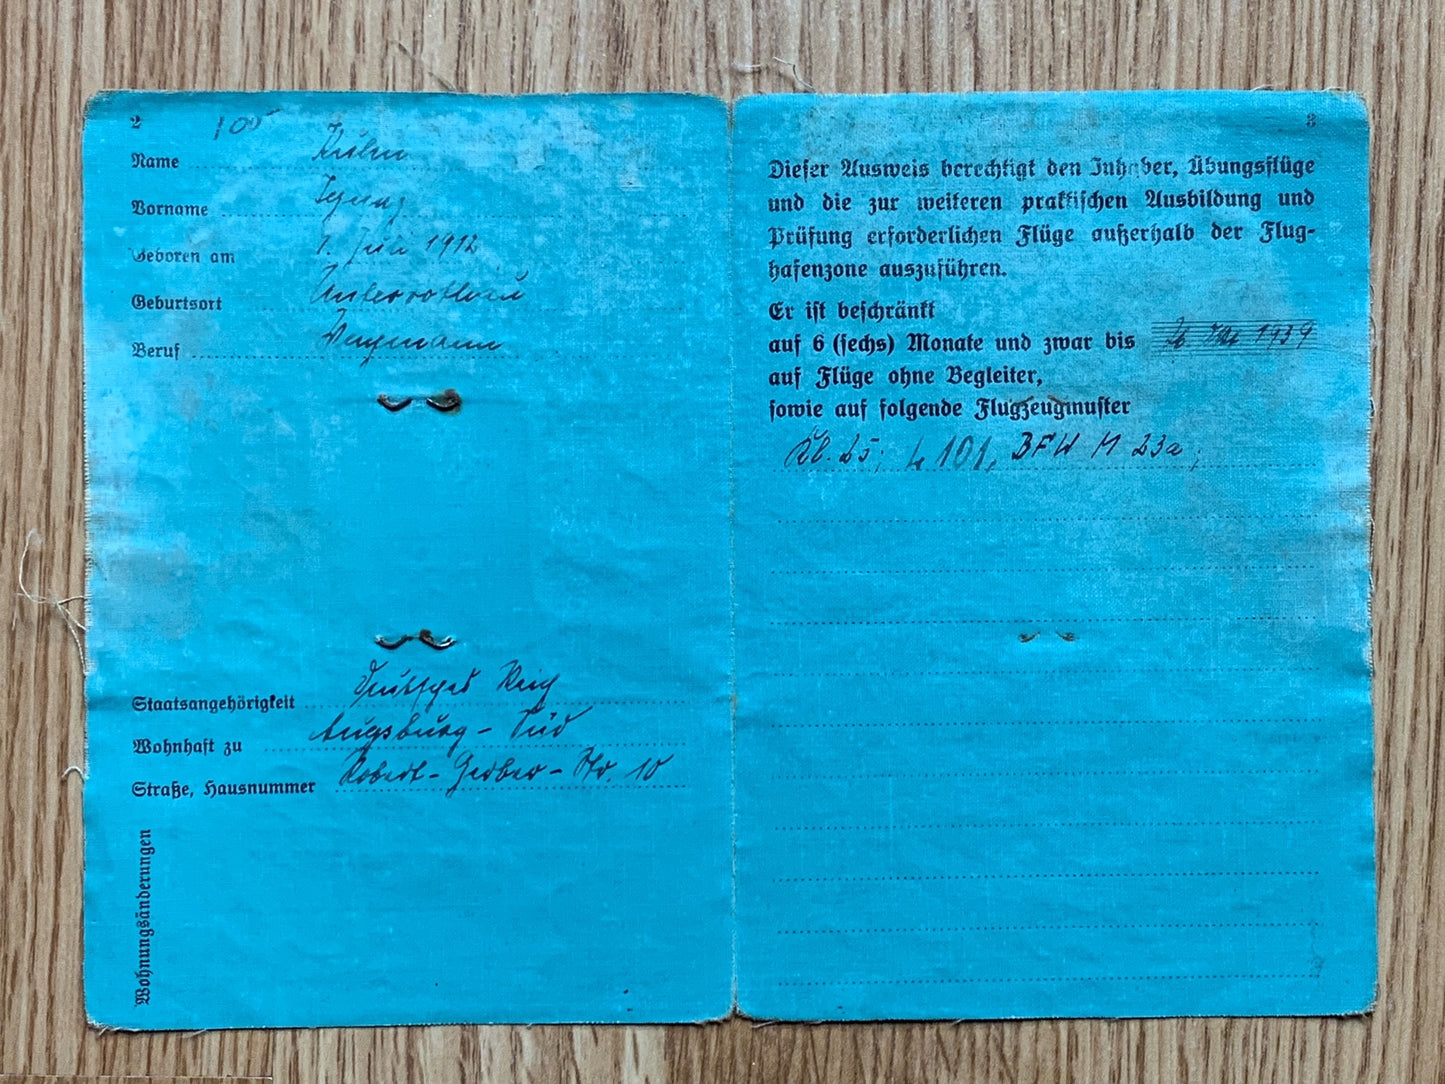 2
105
Name Kuhn
Vorname Ignaz
Geboren am 1. Juli 1912
Geburtsort
Beruf
Staatsangehörigkeit Deutsches Reich
Wohnhaft zu Augsburg - Süd
Straße, Hausnummer Robert - Gerber - Str. 10
Wohnungsänderungen
3
Dieser Ausweis berechtigt den Inhaber, Übungsflüge
und die zur weiteren praktischen Ausbildung und
Prüfung erforderlichen Flüge außerhalb der Flug-
hafenzone auszuführen.
Er ist beschränkt
auf 6 (sechs) Monate und zwar bis 1939
auf Flüge ohne Begleiter,
sowie auf folgende Flugzeugmuster
Kl. 25; L 101, BFW M 23a;